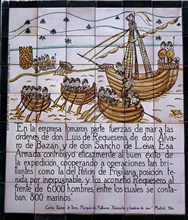 En la empresa tomaron parte fuerzas de mar a las
órdenes de don Luis de Requesens, de don Álvaro
de Bazán, y de don Sancho de Leiva. Esa
Armada contribuyó eficazmente al buen éxito de
la expedición, cooperando a operaciones tan bri-
llantes como la del Peñón de Frigiliana, posición te-
nida por inexpugnable, y los acometió Requesens al
frente de 6.000 hombres entre los cuales se conta-
ban 800 marinos.